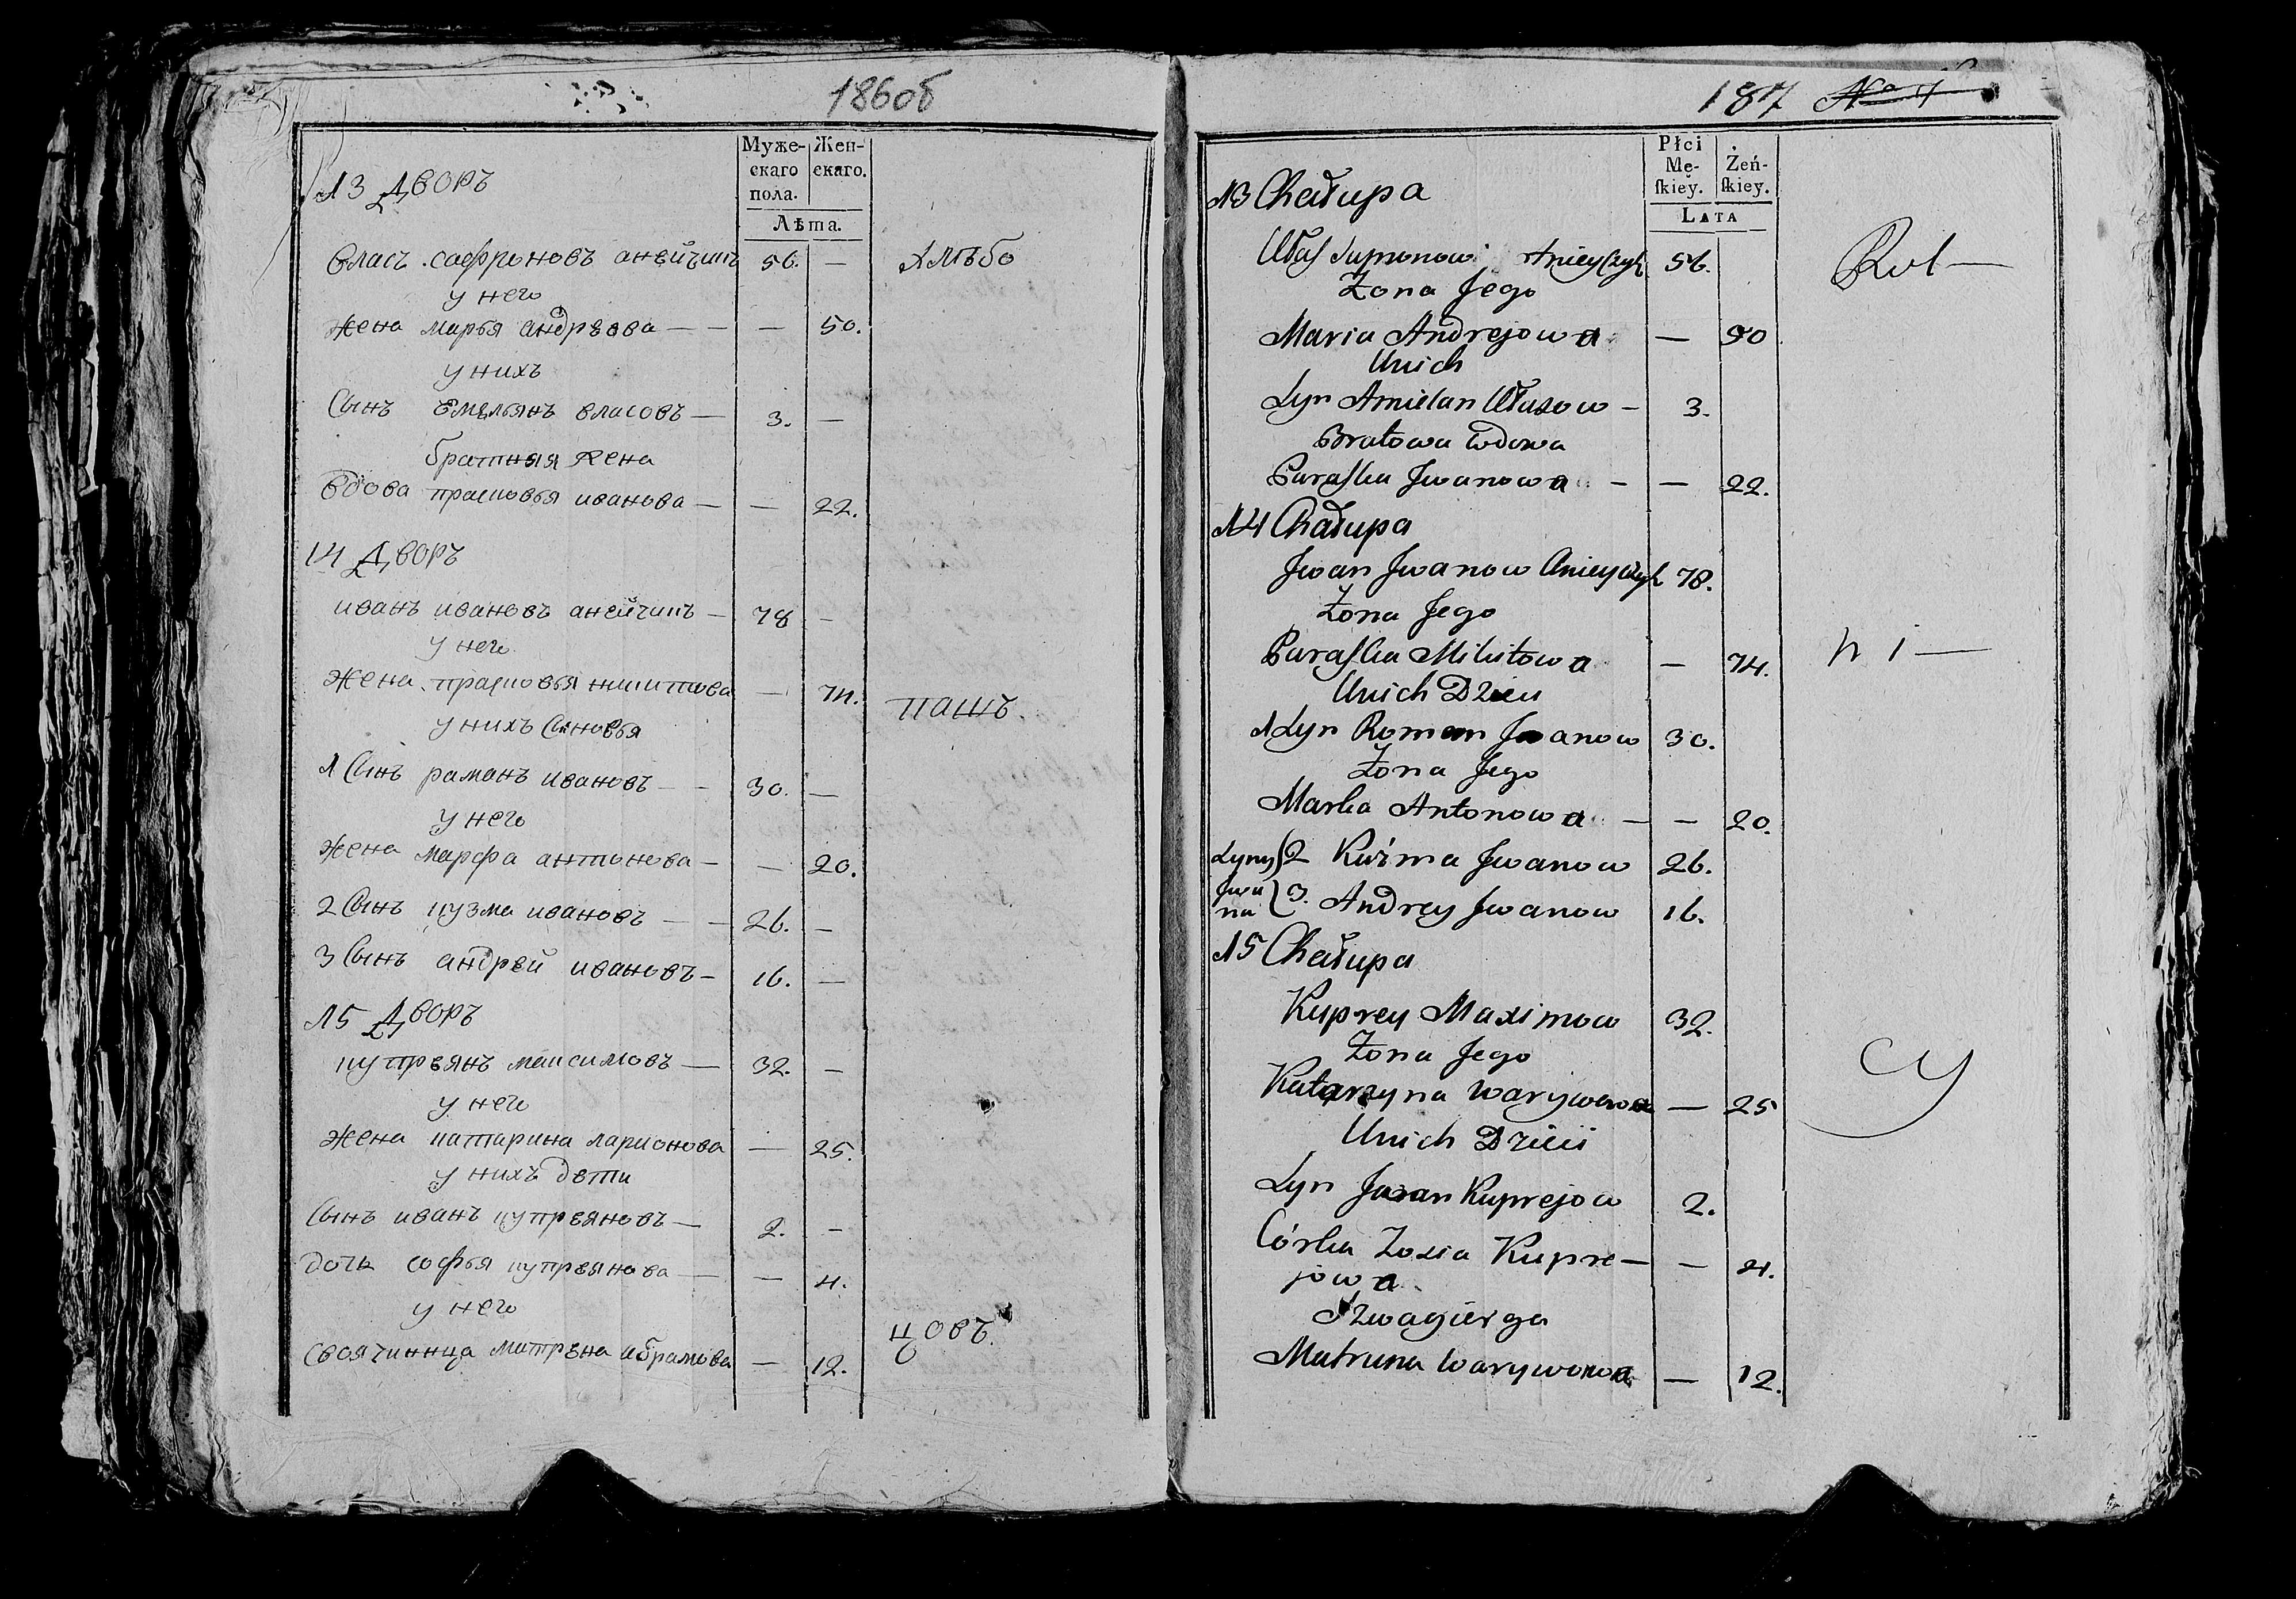 186об
Муже-
скаго
пола.
Жен-
скаго.
Лѣта.
13 Дворъ
власъ сафроновъ анейчикъ 56. —
у него
жена марья андрѣева — — — 50.
у нихъ
Сынъ емельянъ власовъ — 3. —
братняя жена
вдова прасковья иванова — — 22.
14 Дворъ
иванъ ивановъ анейчикъ — 78 —
у него
жена прасковья никитова — 74.
у нихъ Сыновья
1 Сынъ раманъ ивановъ — — 30. —
у него
жена марфа антонова — — 20.
2 Сынъ кузма ивановъ — — 26. —
3 Сынъ андрей ивановъ — 16. —
15 Дворъ
купрѣянъ максимовъ — 32. —
у него
жена катарина ларионова — 25.
у нихъ дѣти
Сынъ иванъ купрѣяновъ — 2. —
дочь софья купрѣянова — — 4.
у него
своячиница матрѣна абрамова — 12.
пашъ
цовъ.
187
Płci
Mę-
ſkiey.
Żeń-
ſkiey.
Lata
13 Chałupa
Ułas Supronow Anieyczyk 56.
Żona Jego
Maria Andrejowa — 50
Unich
Syn Amielan Ułasow — 3.
Bratowa wdowa
Paraska Jwanowa — — 22.
14 Chałupa
Jwan Jwanow Anieyczyk 78.
Żona Jego
Paraska Mikitowa — 74.
Unich Dzieci
1 Syn Roman Jwanow 30.
Żona Jego
Marka Antonowa — — 20.
Syny 2 Kuźma Jwanow 26.
Jwa
na 3. Andrey Jwanow 16.
15 Chałupa
Kuprey Maximow 32.
Żona Jego
Katarzyna Warywonowa — 25
Unich Dzieci
Syn Jwan Kuprejow 2.
Córka Zosia Kupre— — 4.
jowa
Szwagierga
Matruna Warywonowa — 12.
ni —
cy